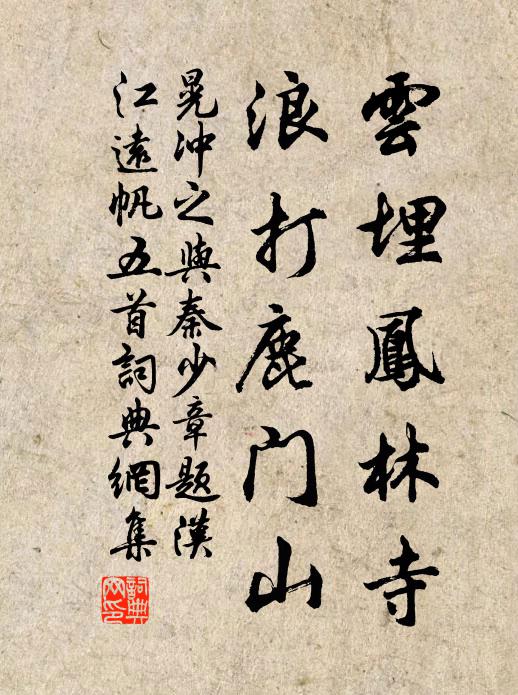 雲埋鳳林寺
浪打鹿门山
晁冲之與秦少章題漢
江遠帆五首詞典網集
詞典
网印